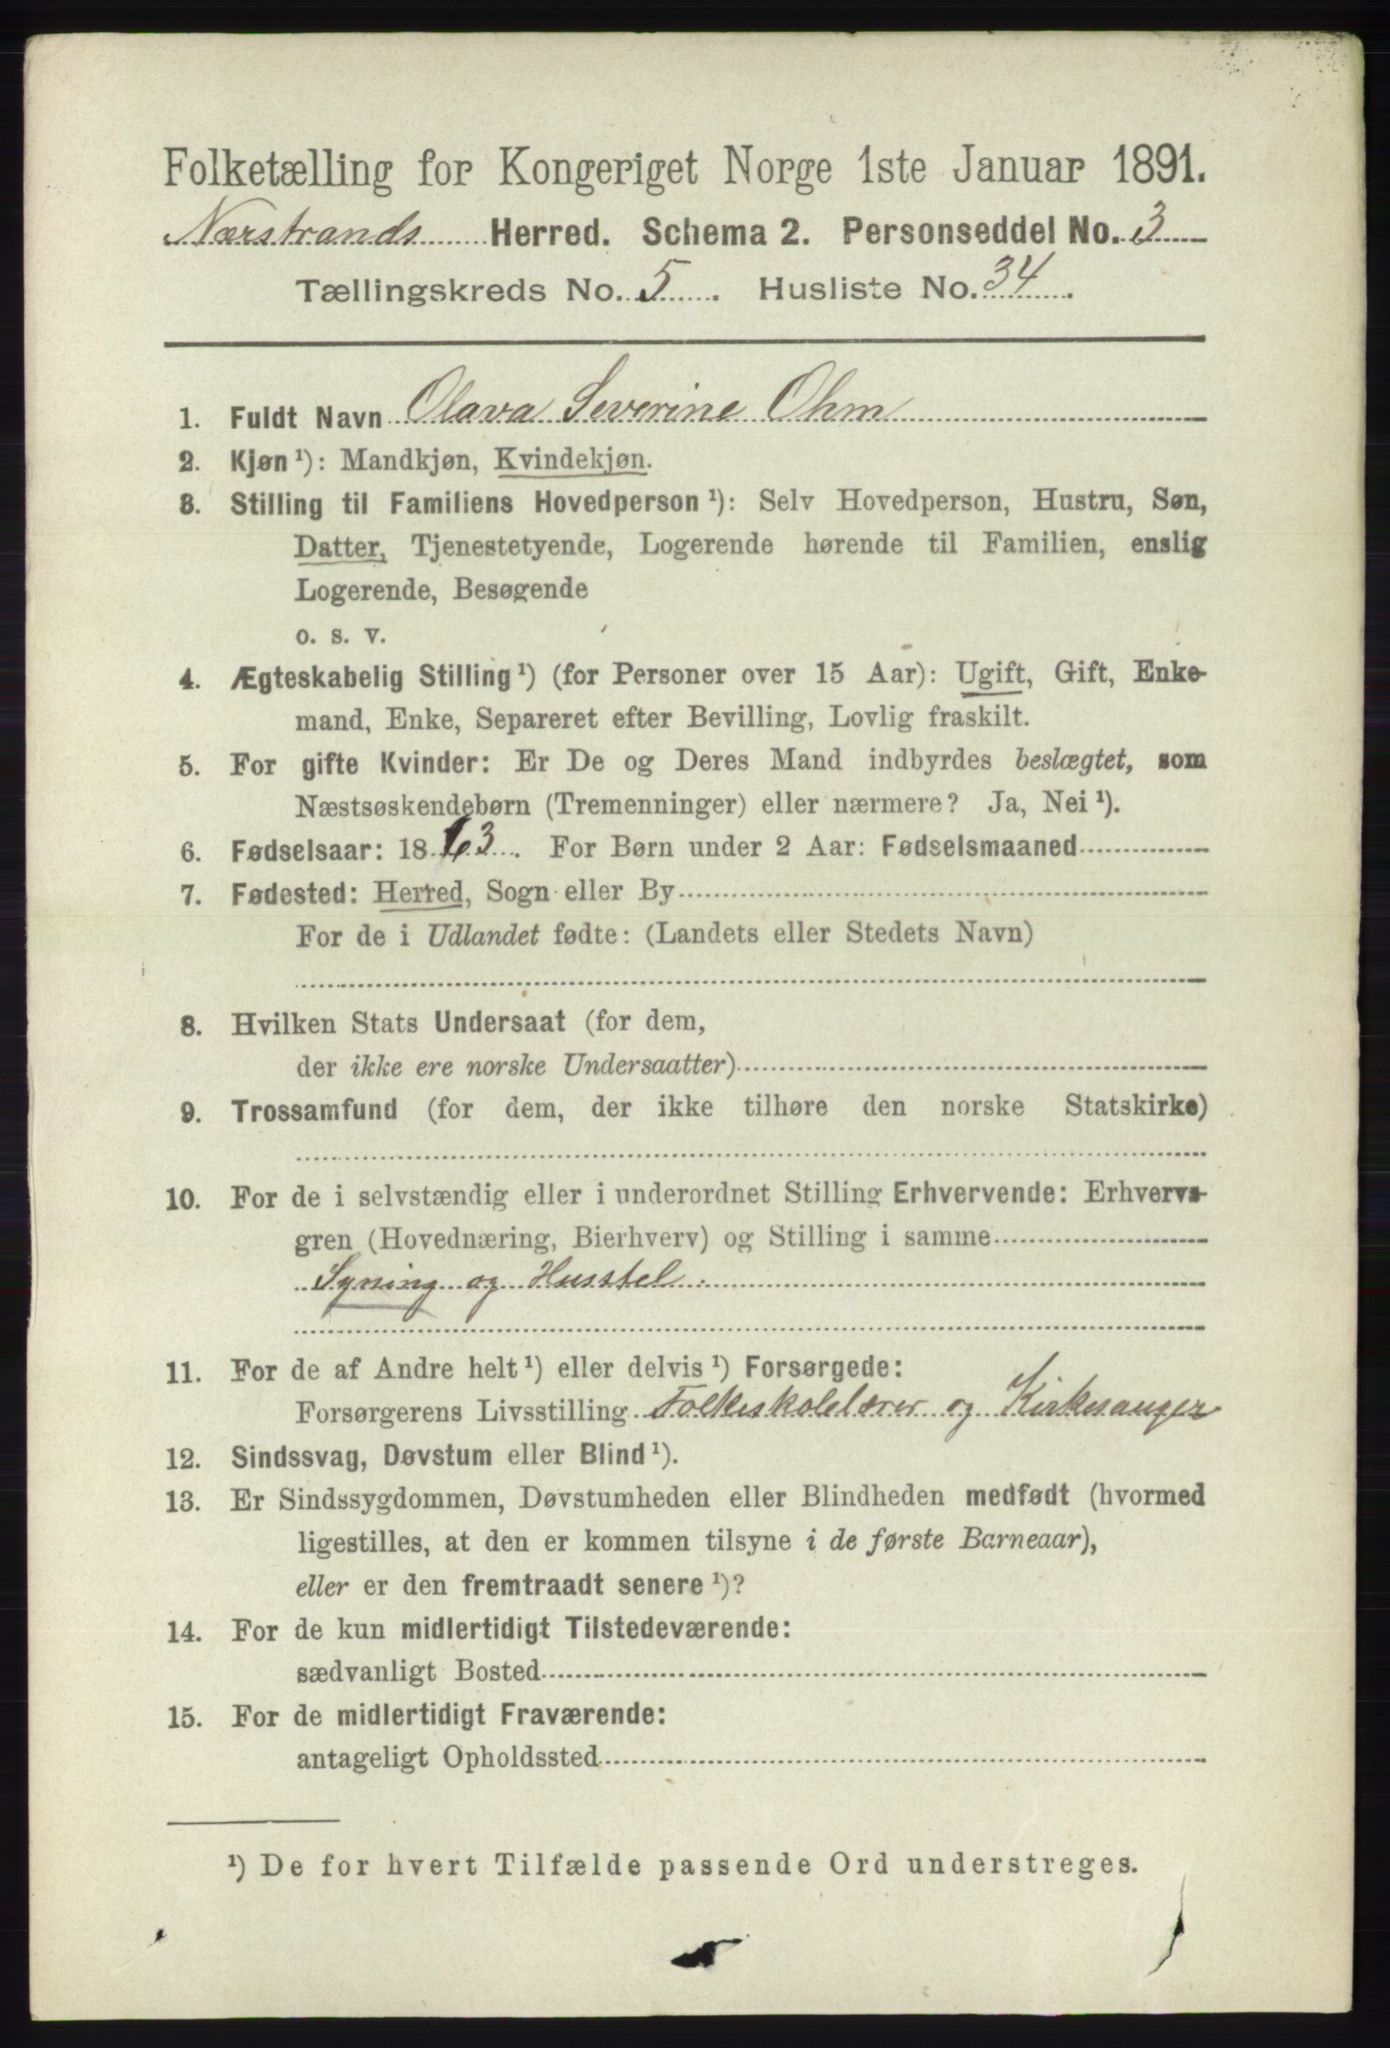 Folketælling for Kongeriget Norge 1ste Januar 1891.
Nærstrands Herred. Schema 2. Personseddel No. 3
Tællingskreds No. 5. Husliste No. 34.
1. Fuldt Navn Olava Severine Ohm
2. Kjøn ¹): Mandkjøn, Kvindekjøn.
3. Stilling til Familiens Hovedperson ¹): Selv Hovedperson, Hustru, Søn,
Datter, Tjenestetyende, Logerende hørende til Familien, enslig
Logerende, Besøgende
o. s. v.
4. Ægteskabelig Stilling ¹) (for Personer over 15 Aar): Ugift, Gift, Enke-
mand, Enke, Separeret efter Bevilling, Lovlig fraskilt.
5. For gifte Kvinder: Er De og Deres Mand indbyrdes beslægtet, som
Næstsøskendebørn (Tremenninger) eller nærmere? Ja, Nei ¹).
6. Fødselsaar: 1863. For Børn under 2 Aar: Fødselsmaaned
7. Fødested: Herred, Sogn eller By
For de i Udlandet fødte: (Landets eller Stedets Navn)
8. Hvilken Stats Undersaat (for dem,
der ikke ere norske Undersaatter)
9. Trossamfund (for dem, der ikke tilhøre den norske Statskirke)
10. For de i selvstændig eller i underordnet Stilling Erhvervende: Erhvervs-
gren (Hovednæring, Bierhverv) og Stilling i samme
Syning og Husstel.
11. For de af Andre helt ¹) eller delvis ¹) Forsørgede:
Forsørgerens Livsstilling Folkeskolelærer og Kirkesanger
12. Sindssvag, Døvstum eller Blind ¹).
13. Er Sindssygdommen, Døvstumheden eller Blindheden medfødt (hvormed
ligestilles, at den er kommen tilsyne i de første Barneaar),
eller er den fremtraadt senere ¹)?
14. For de kun midlertidigt Tilstedeværende:
sædvanligt Bosted
15. For de midlertidigt Fraværende:
antageligt Opholdssted
¹) De for hvert Tilfælde passende Ord understreges.